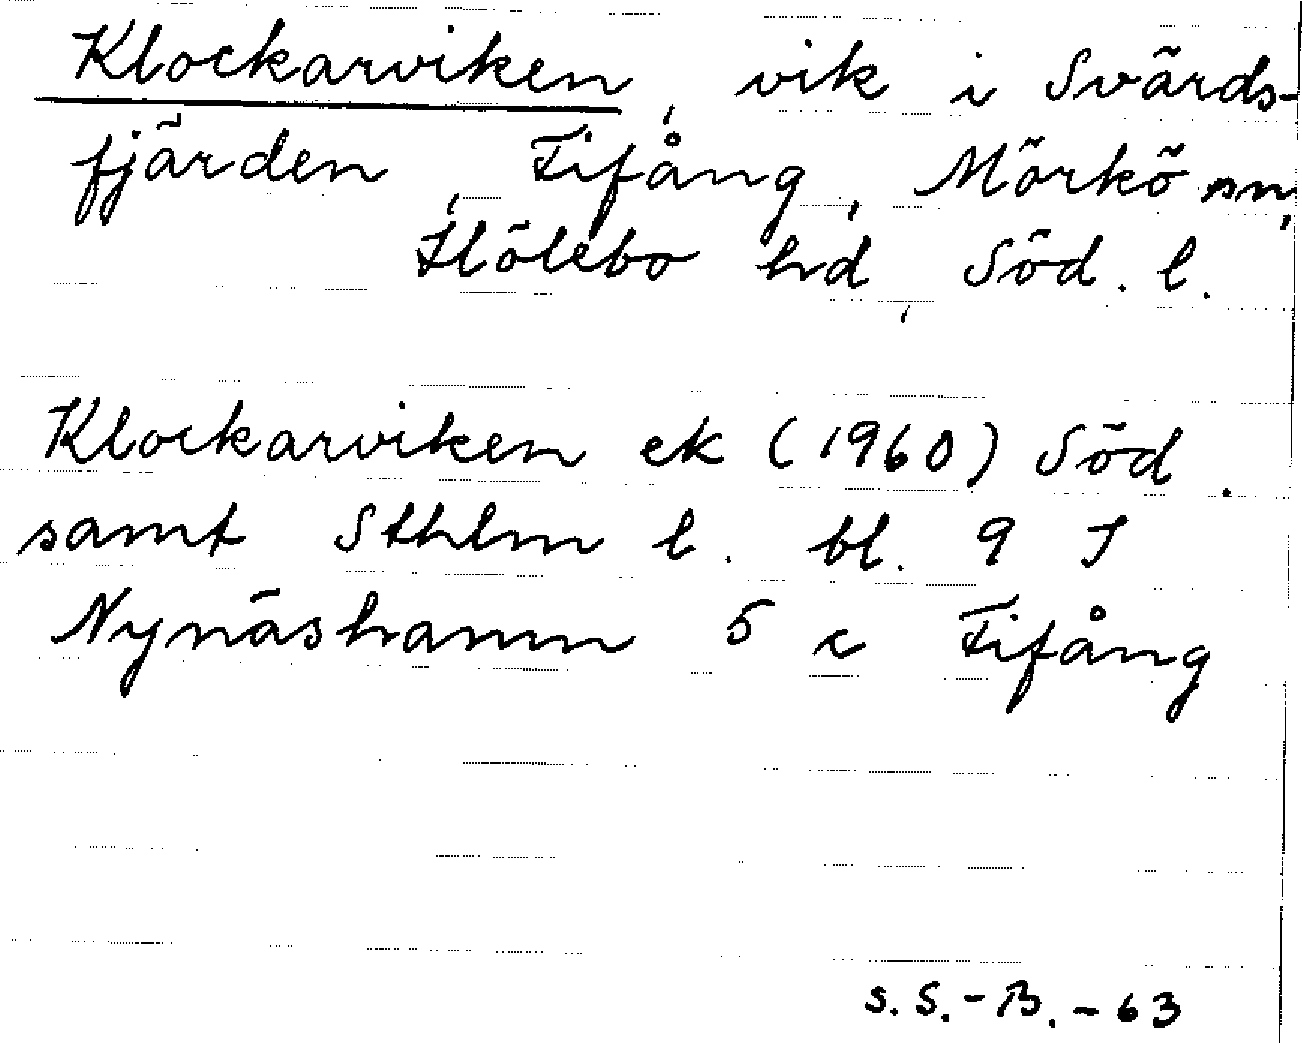 Klockarviken, vik i Svärds-
fjärden, Fifång, Mörkö sn,
Hölebo hd, Söd. l.
Klockarviken ek (1960) Söd.
samt Sthlm l. bl. 9 I
Nynäshamn 5 c Fifång
s. S.-B. -63